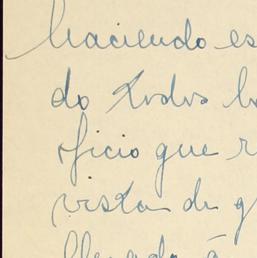 haciendo es
do todos lo
oficio que r
vista de q
llegado á